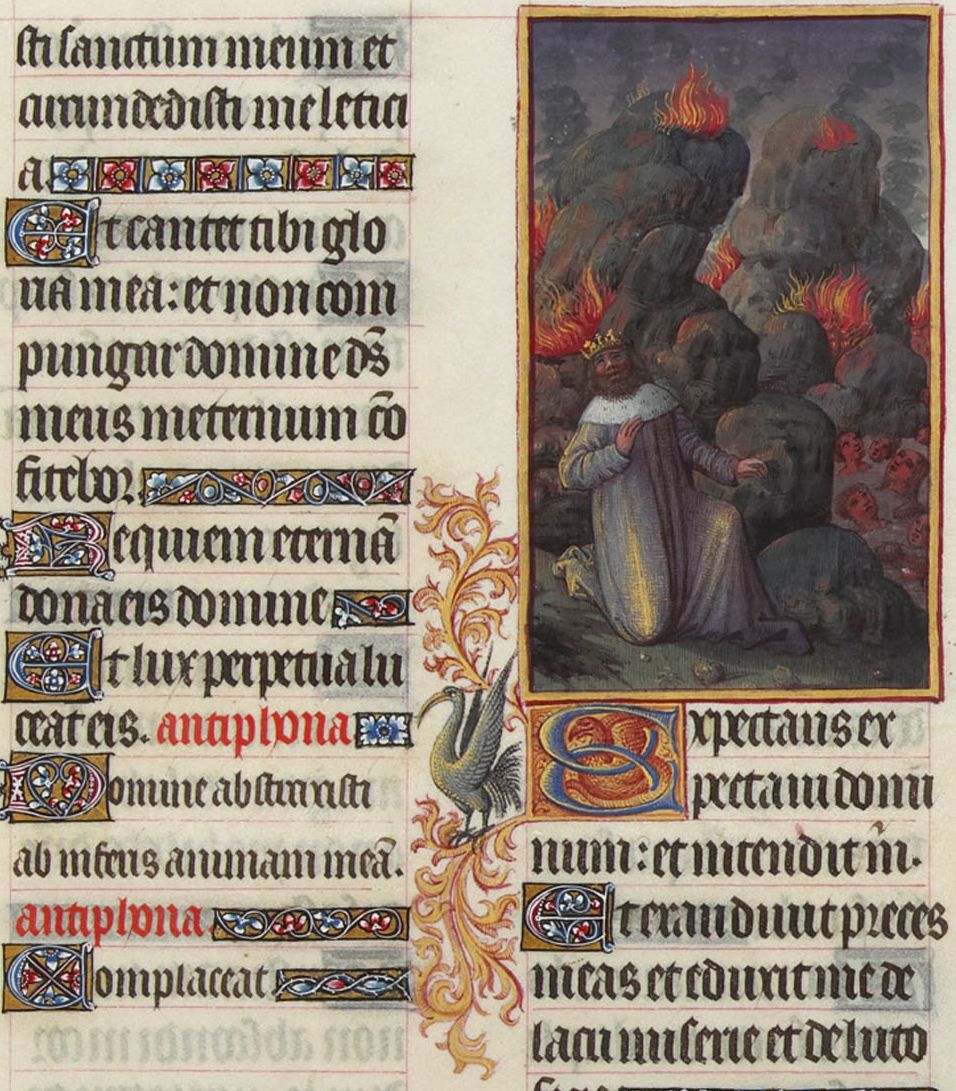 sti sanctum meum et
circundedisti me letici
a.
Et cantet tibi glo
ria mea: et non com
pungar domine ds̄
meus in eternum cō
fitebor.
Requiem eternā
dona eis domine
Et lux perpetua lu
ceat eis. antiphona
Domine abstraxisti
ab inferis animam meā.
antiphona.
Complaceat
Expectans ex
pectaui domi
num: et intendit m̄.
Et exaudiuit preces
meas et eduxit me de
lacu miserie et de luto